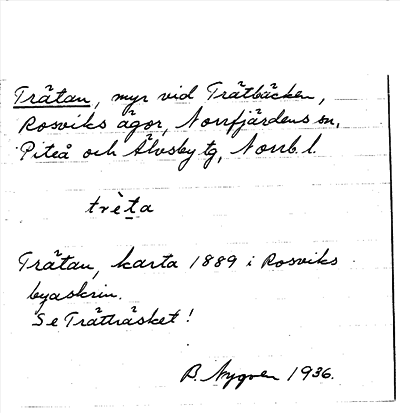 Trätan, myr vid Trätbäcken,
Rosviks ägor, Norrfjärdens sn,
Piteå och Älvsby tg, Norrb. l.
trèta
Trätan, karta 1889 i Rosviks
byaskrin.
Se Trätträsket!
B. Nygren 1936.